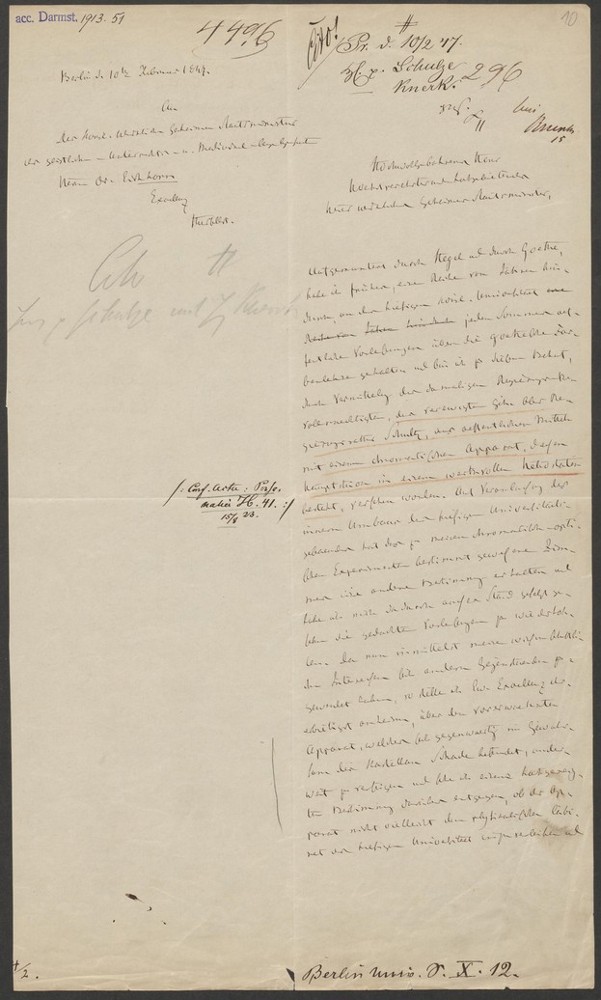 acc. Darmst. 1913. 51
4496
Cito!
#
Pr. d. 10/2 47.
H. z. Schulze 296
Knerk.
10
Berlin d. 10ten Februar 1847.
An
den Königl. wirklichen Geheimen Staatsminister
der geistlichen - Unterrichts - u. Medicinal-Angelegenheiten
Herrn Dr. Eichhorn
Excellenz
Hochwohlgeborener Herr
Hochverehrter und hochgebietender
Herr wirklicher Geheimer Staatsminister,
Cito #
Aufgemuntert durch Hegel und durch Goethe,
habe ich früher, eine Reihe von Jahren hin-
durch, an der hiesigen Königl. Universität
jeden Sommer öf-
fentliche Vorlesungen über die goethesche Far-
benlehre gehalten und bin ich zu diesem Behuf,
durch Vermittelung des damaligen Regierungs-
bevollmächtigten, des verewigten Geh. Ober Re-
gierungsrathes Schultz, aus oeffentlichen Mitteln
mit einem chromatischen Apparat, dessen
Hauptstück in einem werthvollen
besteht, versehen worden. Auf Veranlassung des
inneren Umbaus des hiesigen Universitäts-
gebaeudes hat das zu meinen chromatisch-opti-
schen Experimenten bestimmt gewesene Zim-
mer eine andere Bestimmung erhalten und
habe ich mich dadurch außer Stand gesetzt ge-
sehen die gedachten Vorlesungen zu wiederholen
Da nun inmittelst meine wissenschaftli-
chen Interessen sich anderen Gegenständen zu-
gewendet haben, so stelle ich Ew. Excellenz ehr-
erbietigst anheim, über den vorerwaehnten
Apparat, welcher sich gegenwärtig im Gewahr-
sam des Kastellan Schade befindet, ander-
weit zu verfügen und sehe ich einer hochgeneig-
ten Bestimmung darüber entgegen, ob der Ap-
parat nicht vielleicht dem physikalischen Cabi-
net der hiesigen Universitaet einzuverleiben und
15/8 23.
Berlin Univ. S. X. 12.